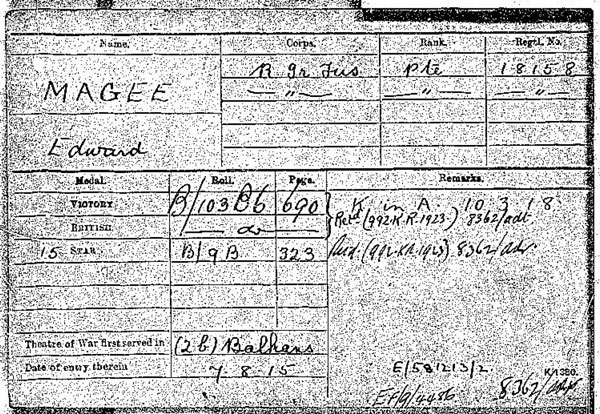 Name. Corps. Rank. Regtl. No.
MAGEE R Ir Fus Pte 18158
— " — — " — — " —
Edward
Medal. Roll. Page. Remarks.
VICTORY B/103 B6 690 K. in A. 10 3 18
BRITISH — do — Retd (992.K.R.1923) 8362/adt
15 STAR B/9B 323 8362/adt
Theatre of War first served in (2b) Balkans
Date of entry therein 7-8-15
E/581213/2
K1380.
EF/9/4456 8362/adt